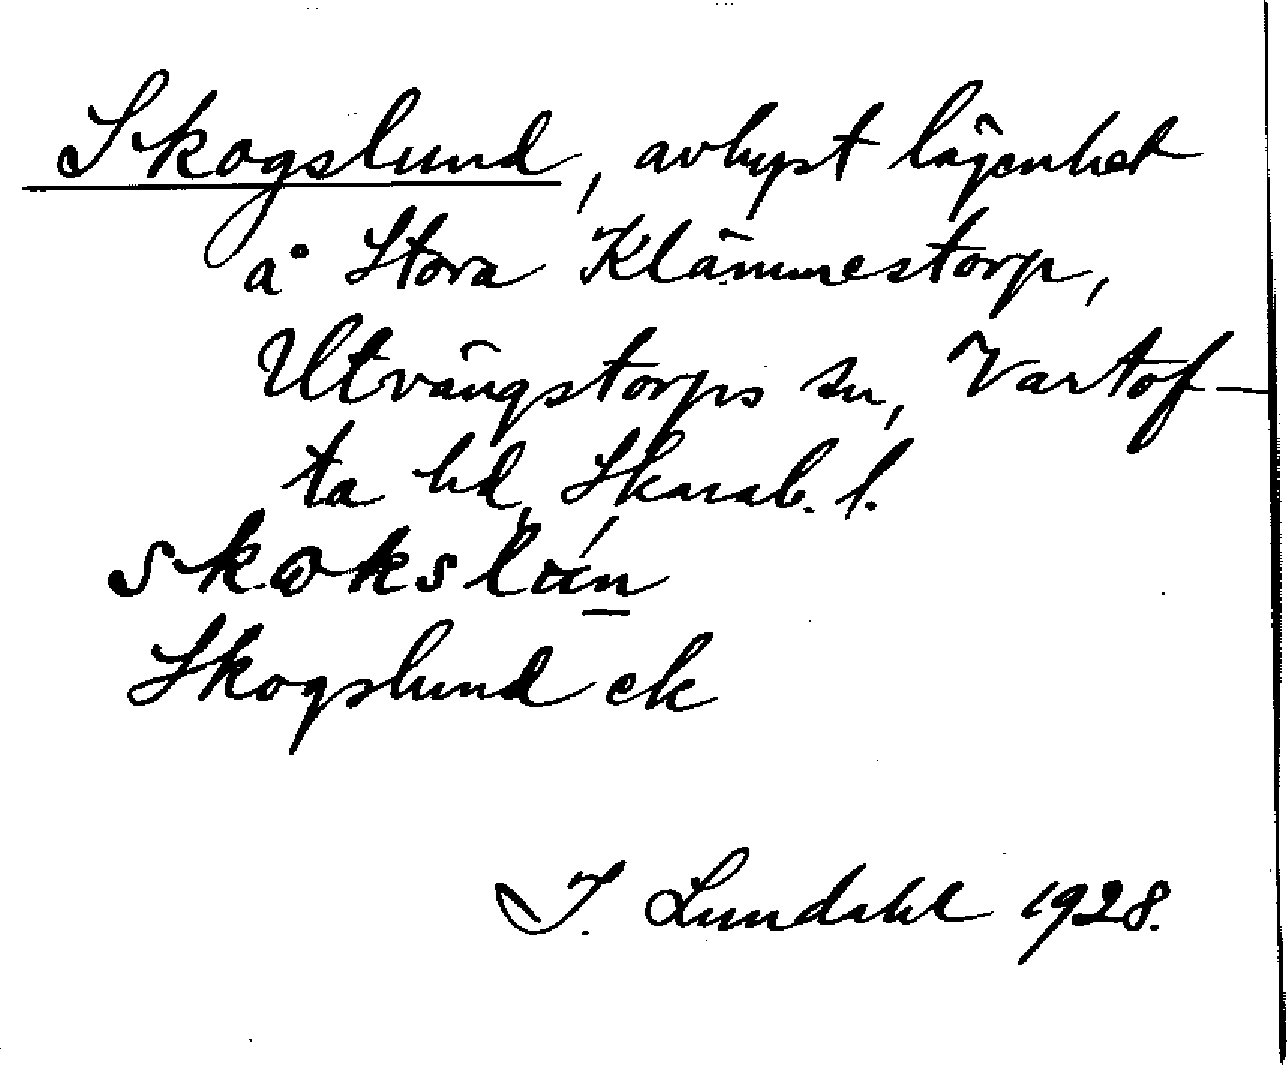 Skogslund, avhyst lägenhet
å Stora Klämmestorp,
Utvängstorps sn, Vartof-
ta hd, Skarab. l.
Skogslund ek
I. Lundahl 1928.